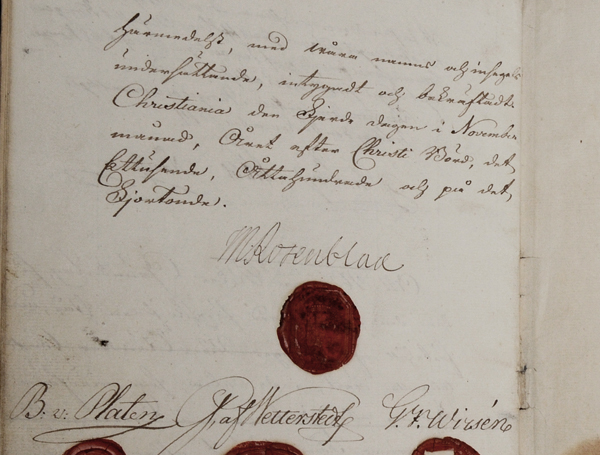 härmedelst, med våra namns och insegels
undersättande, intygadt och bekräftadt.
Christiania den Fjerde dagen i November
månad, Året efter Christi Börd, det
Ettusende, Åttahundrede och på det,
Fjortonde.
M. Rosenblad
B. v. Platen G. af Wetterstedt G. F. Wirsén